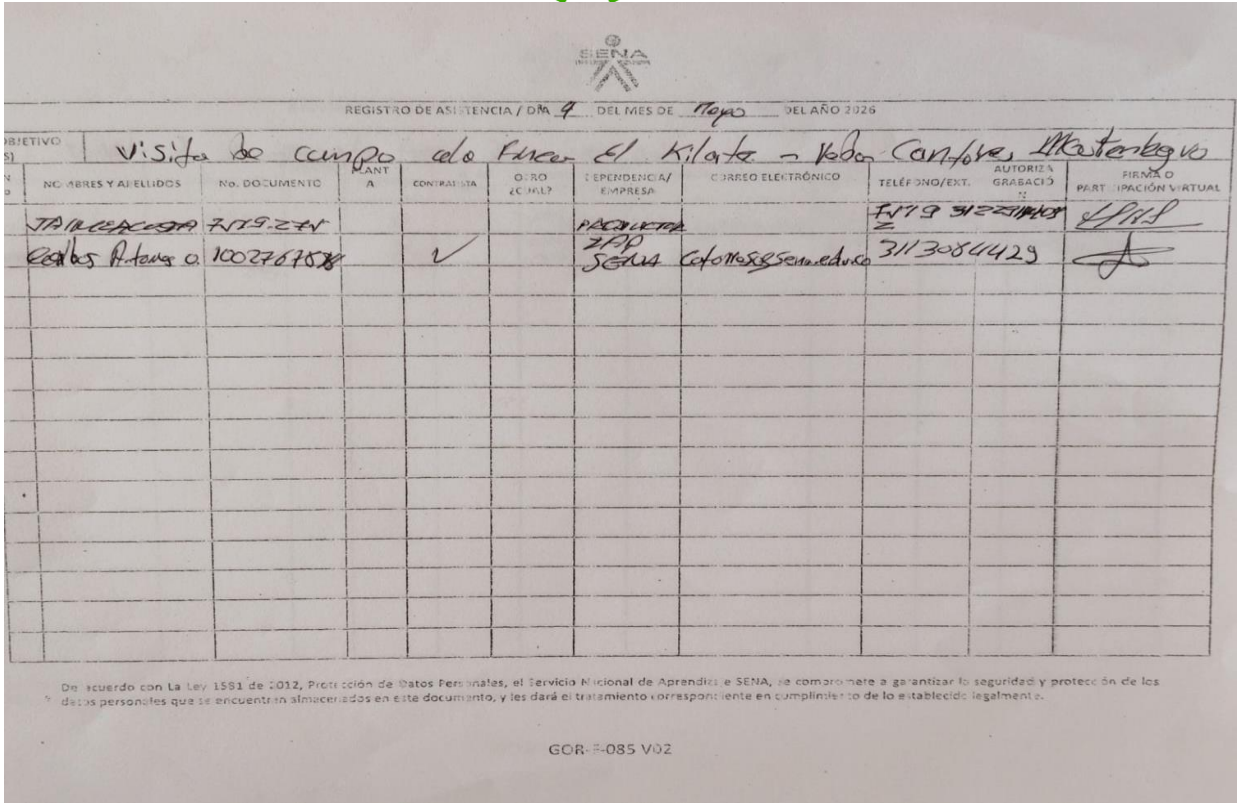 SENA
REGISTRO DE ASISTENCIA / DÍA 9 DEL MES DE Mayo DEL AÑO 2026
OBJETIVO
S)
Visita de campo a la Finca El Kilate -
NOMBRES Y APELLIDOS No. DOCUMENTO PLANTA CONTRATISTA OTRO ¿CUAL? DEPENDENCIA/ EMPRESA CORREO ELECTRÓNICO TELÉFONO/EXT. AUTORIZA GRABACIÓN FIRMA O PARTICIPACIÓN VIRTUAL
JAIME ACOSTA PRODUCTOR
Carlos 1002767878 ✓ SENA 3113084429
De acuerdo con La Ley 1581 de 2012, Protección de Datos Personales, el Servicio Nacional de Aprendizaje SENA, se compromete a garantizar la seguridad y protección de los
datos personales que se encuentran almacenados en este documento, y les dará el tratamiento correspondiente en cumplimiento de lo establecido legalmente.
GOR-F-085 V02